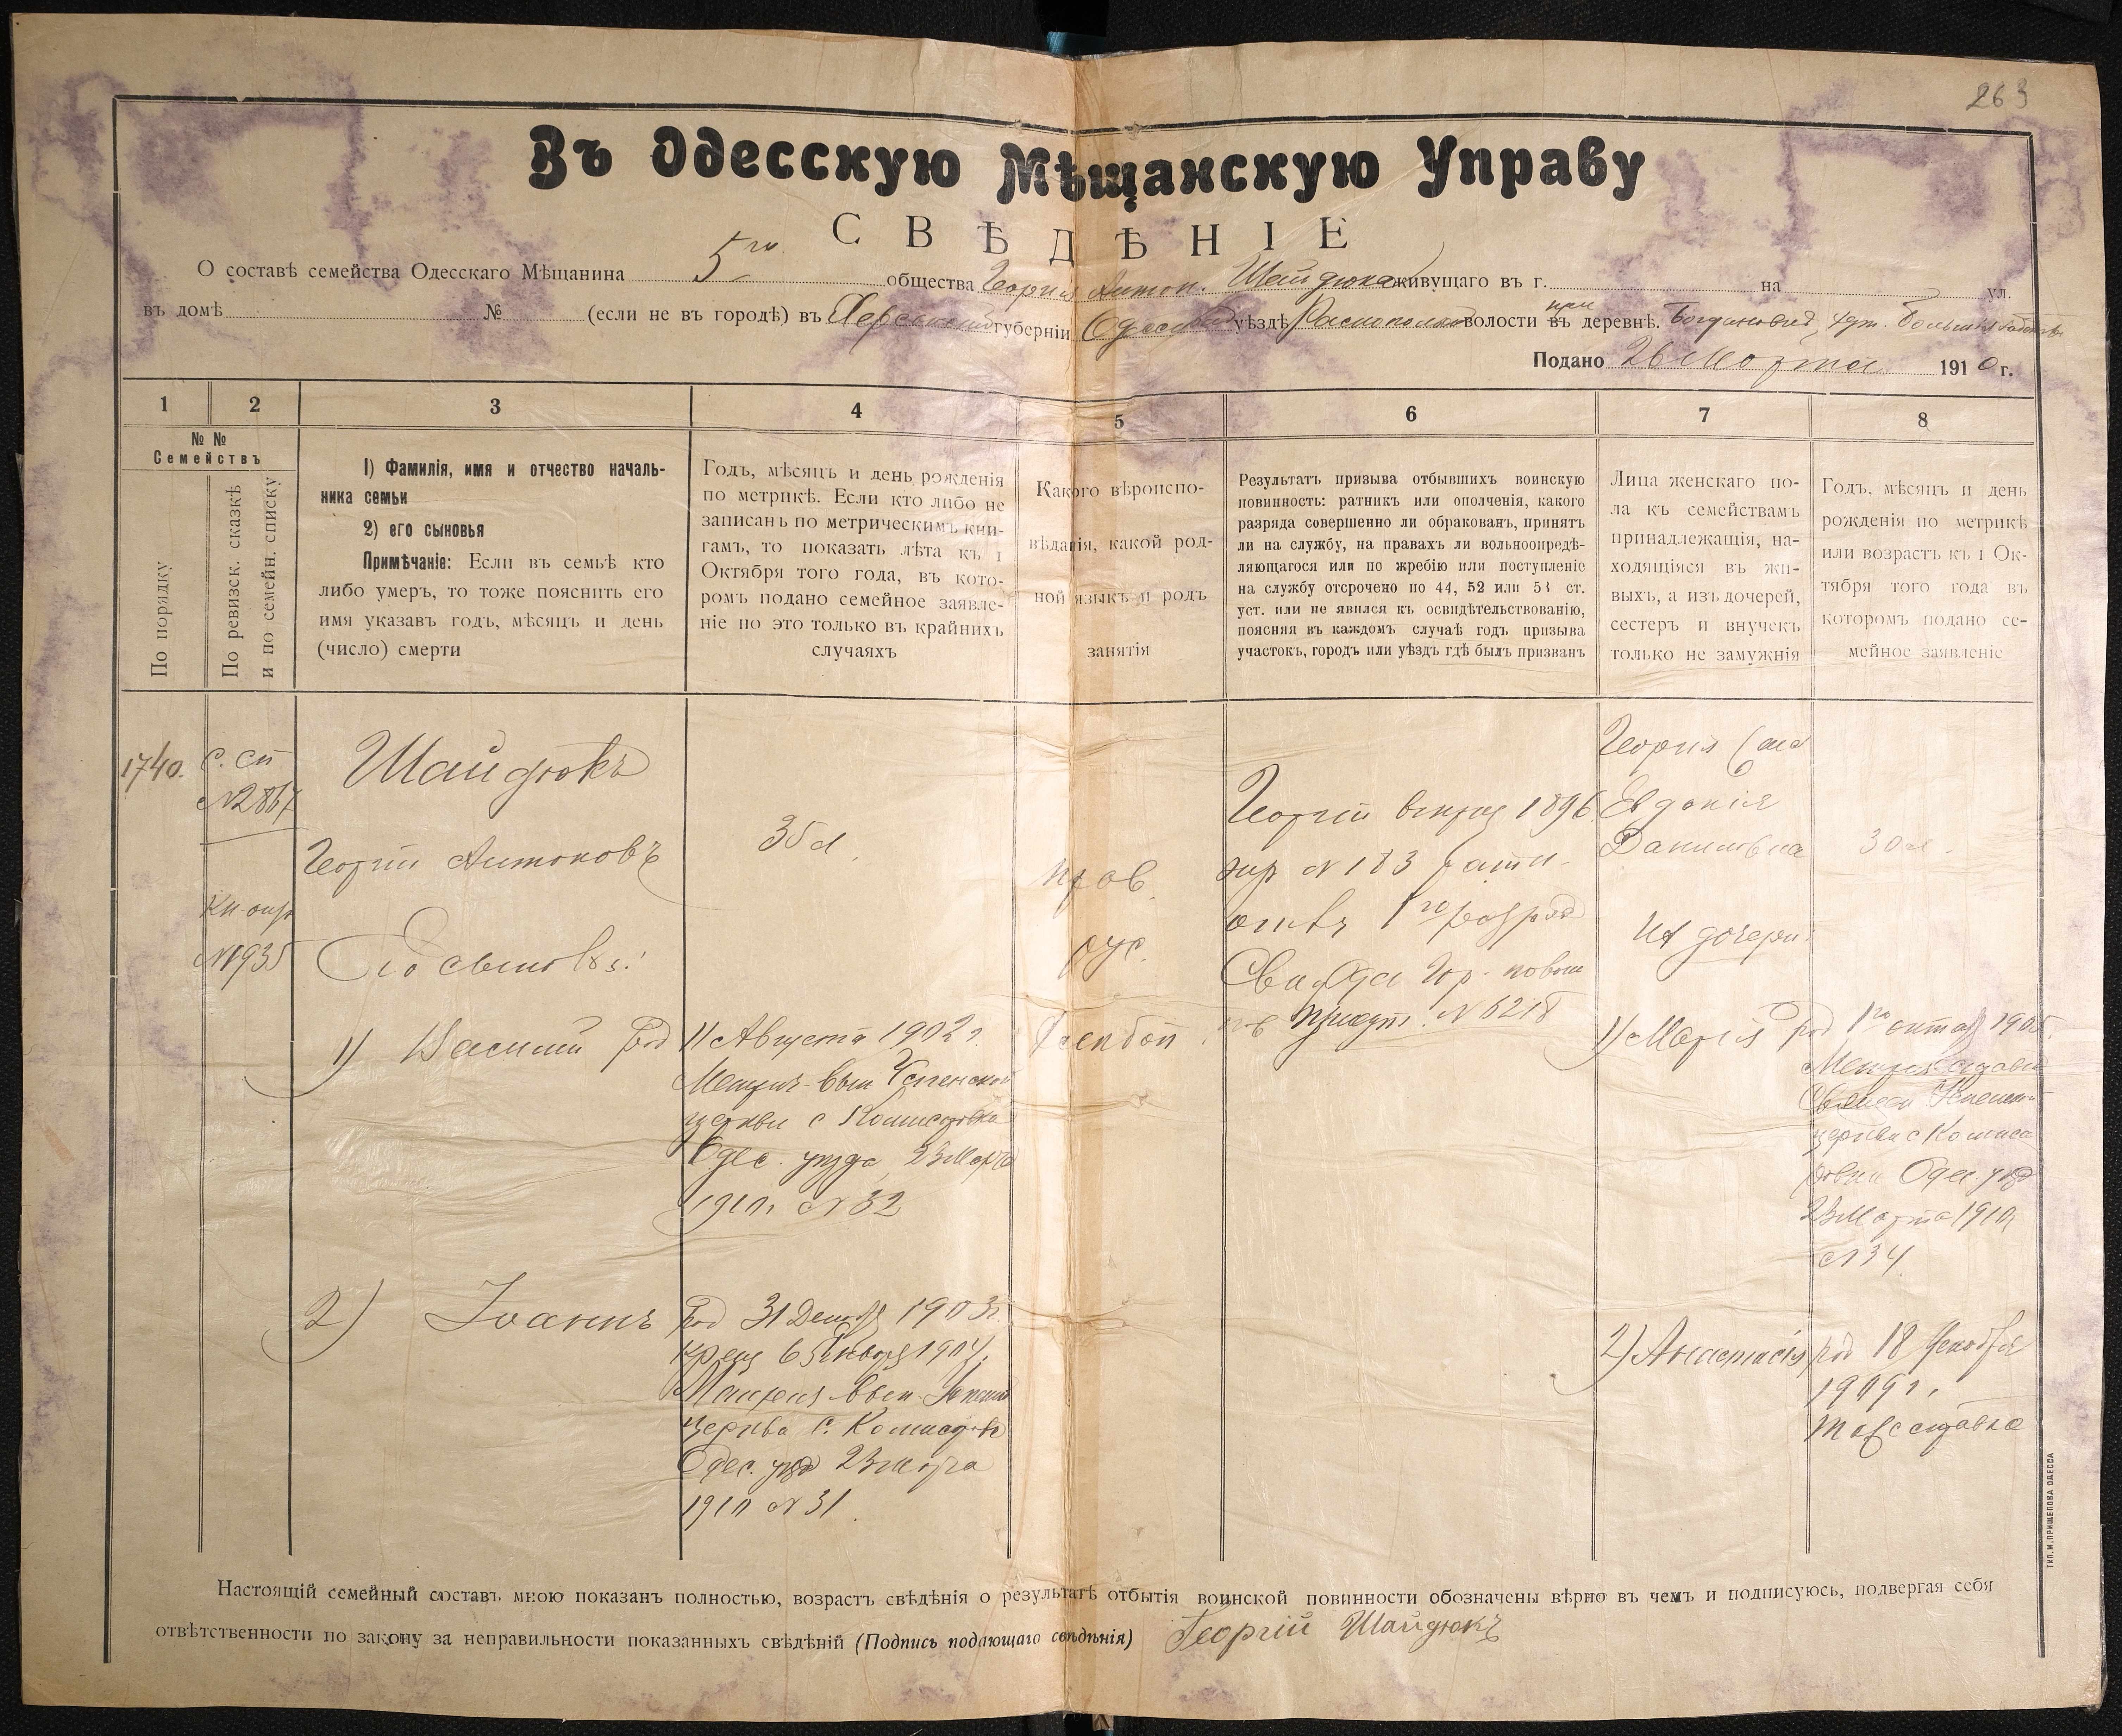 263
Въ Одесскую Мѣщанскую Управу
СВѢДѢНІЕ
О составѣ семейства Одесскаго Мѣщанина 5го общества Георгія Антон. Шайдюка живущаго въ г. на ул.
въ домѣ № (если не въ городѣ) въ Херсонской губерніи Одесскаго уѣздѣ волости при въ деревнѣ.
Подано 26 Марта 1910 г.
1 2 3 4 5 6 7 8
№ №
Семействъ
По порядку
По ревизск. сказкѣ
и по семейн. списку
1) Фамилія, имя и отчество началь-
ника семьи
2) его сыновья
Примѣчаніе: Если въ семьѣ кто
либо умеръ, то тоже пояснить его
имя указавъ годъ, мѣсяцъ и день
(число) смерти
Годъ, мѣсяцъ и день рожденія
по метрикѣ. Если кто либо не
записанъ по метрическимъ кни-
гамъ, то показать лѣта къ 1
Октября того года, въ кото-
ромъ подано семейное заявле-
ніе но это только въ крайнихъ
случаяхъ
Какого вѣроиспо-
вѣданія, какой род-
ной языкъ и родъ
занятія
Результатъ призыва отбывшихъ воинскую
повинность: ратникъ или ополченія, какого
разряда совершенно ли обракованъ, принятъ
ли на службу, на правахъ ли вольноопредѣ-
ляющагося или по жребію или поступленіе
на службу отсрочено по 44, 52 или 53 ст.
уст. или не явился къ освидѣтельствованію,
поясняя въ каждомъ случаѣ годъ призыва
участокъ, городъ или уѣздъ гдѣ былъ призванъ
Лица женскаго по-
ла къ семействамъ
принадлежащія, на-
ходящіяся въ жи-
выхъ, а изъ дочерей,
сестеръ и внучекъ
только не замужнія
Годъ, мѣсяцъ и день
рожденія по метрикѣ
или возрастъ къ 1 Ок-
тября того года въ
которомъ подано се-
мейное заявленіе
1740.
С. сп
№2867
Кн. окр
№1935
Шайдюкъ
Георгій Антоновъ
Его сыновья:
35 л.
прав.
рус.
Георгій 1896
жр №183 ратн.
опол. 1го разряда
Св.
№6218
Георгія жена
Евдокія
Даниловна
30 л.
Их дочери:
1) Василій Род
11 Августа 1902 г.
Метрич. вып. Успенской
церкви с. Комисаровка
Одес. уѣзда, 23 Марта
1910 г. №32
1) Марія
род 1го октяб 1905
Успенской
церкви с Комиса
ровки Одес. уѣзд
23 Марта 1910
№34
2) Іоаннъ
Род 31 Декаб 1903 г.
крещ 6 Января 1904 г.
Метрич. вып. Успенск
церкви с. Комисаров
Одес. уѣзд 23 марта
1910 №31.
2) Анастасія
род 18 декабря
1909 г.
Настоящій семейный составъ мною показанъ полностью, возрастъ свѣдѣнія о результатѣ отбытія воинской повинности обозначены вѣрно въ чемъ и подписуюсь, подвергая себя
отвѣтственности по закону за неправильности показанныхъ свѣдѣній (Подпись подающаго свѣдѣнія) Георгій Шайдюкъ
ТИП. М. ПРИЩЕПОВА ОДЕССА